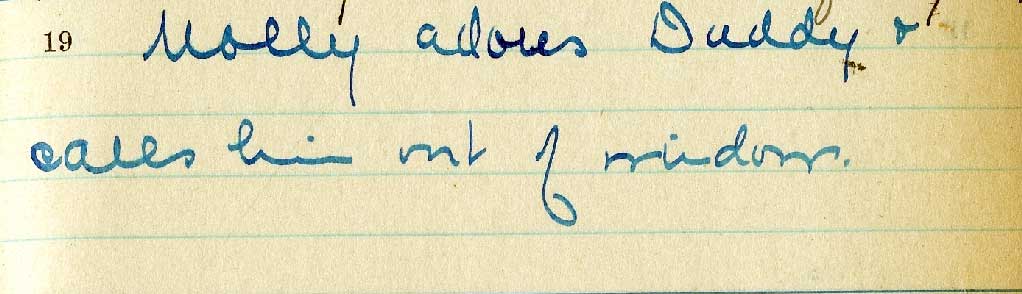 19 Molly adores Daddy &
calls him out of window.